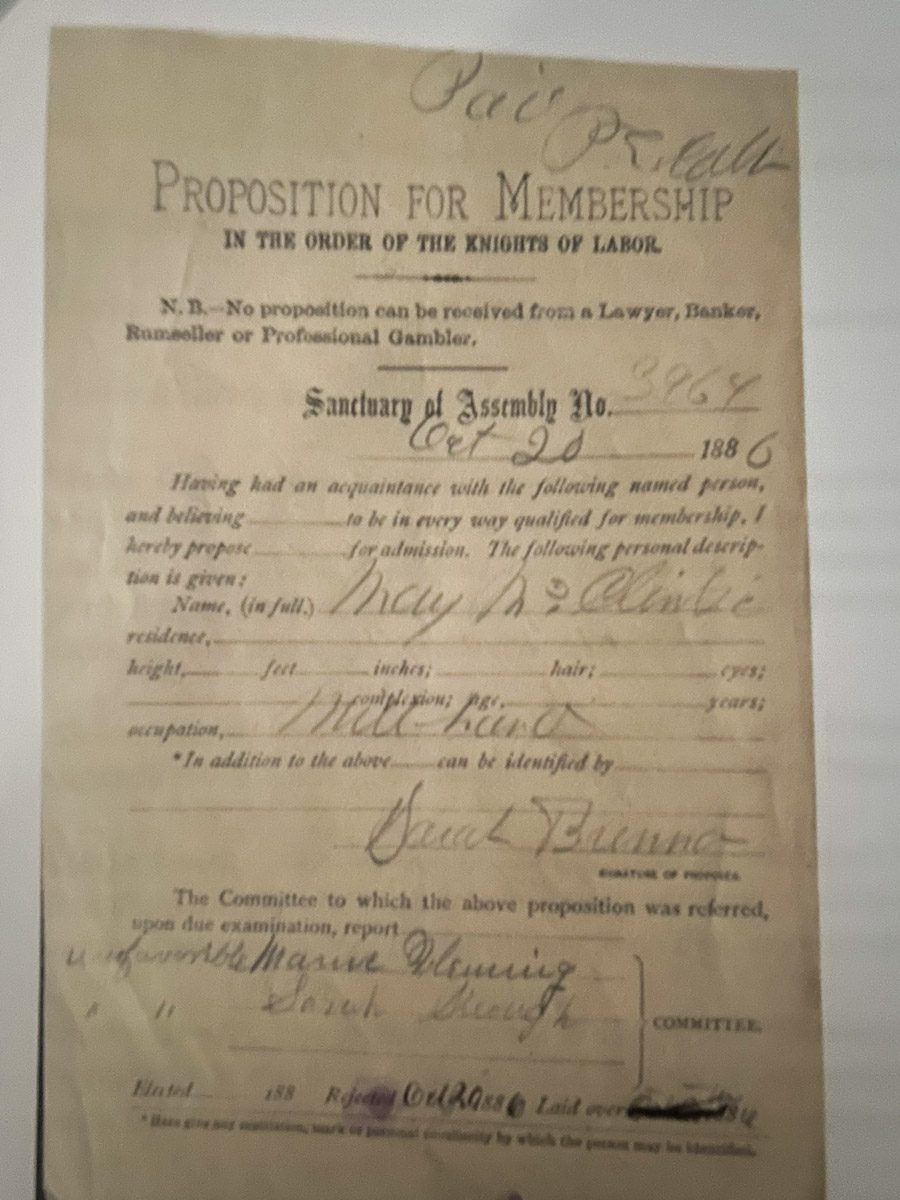 Paid
P.T.
PROPOSITION FOR MEMBERSHIP
IN THE ORDER OF THE KNIGHTS OF LABOR.
N. B.—No proposition can be received from a Lawyer, Banker,
Rumseller or Professional Gambler.
Sanctuary of Assembly No. 3964
Oct 20 1886
Having had an acquaintance with the following named person,
and believing to be in every way qualified for membership, I
hereby propose for admission. The following personal descrip-
tion is given:
Name, (in full.) May Mc Clintic
residence,
height, feet inches; hair; eyes;
complexion; age, years;
occupation, Mill hand
*In addition to the above can be identified by
Sarah
SIGNATURE OF PROPOSER.
The Committee to which the above proposition was referred,
upon due examination, report
unfavorible Mamie Fleming
" " Sarah Keough
COMMITTEE.
Elected 188 Rejected Oct 20 1886 Laid over 188
* Here give any mark or personal peculiarity by which the person may be identified.